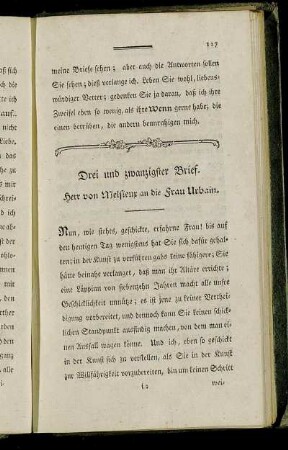 117
meine Briefe sehen; aber auch die Antworten sollen
Sie sehen; dieß verlange ich. Leben Sie wohl, liebens-
würdiger Vetter; gedenken Sie ja daran, daß ich ihre
Zweifel eben so wenig, als ihre Wenn gerne habe; die
einen betrüben, die andern beunruhigen mich.
Drei und zwanzigster Brief.
Herr von Melsieux an die Frau Urbain.
Nun, wie stehts, geschickte, erfahrne Frau! bis auf
den heutigen Tag wenigstens hat Sie sich dafür gehal-
ten; in der Kunst zu verführen gabs keine fähigere; Sie
hätte beinahe verlangt, daß man ihr Altäre errichte;
eine Läppin von siebenzehn Jahren macht alle unsre
Geschicklichkeit unnütze; es ist jene zu keiner Verthei-
digung vorbereitet, und dennoch kann Sie keinen schick-
lichen Standpunkt ausfindig machen, von dem man ei-
nen Ausfall wagen könne. Und ich, eben so geschickt
in der Kunst sich zu verstellen, als Sie in der Kunst
zur Willfährigkeit vorzubereiten, bin um keinen Schritt
wei-